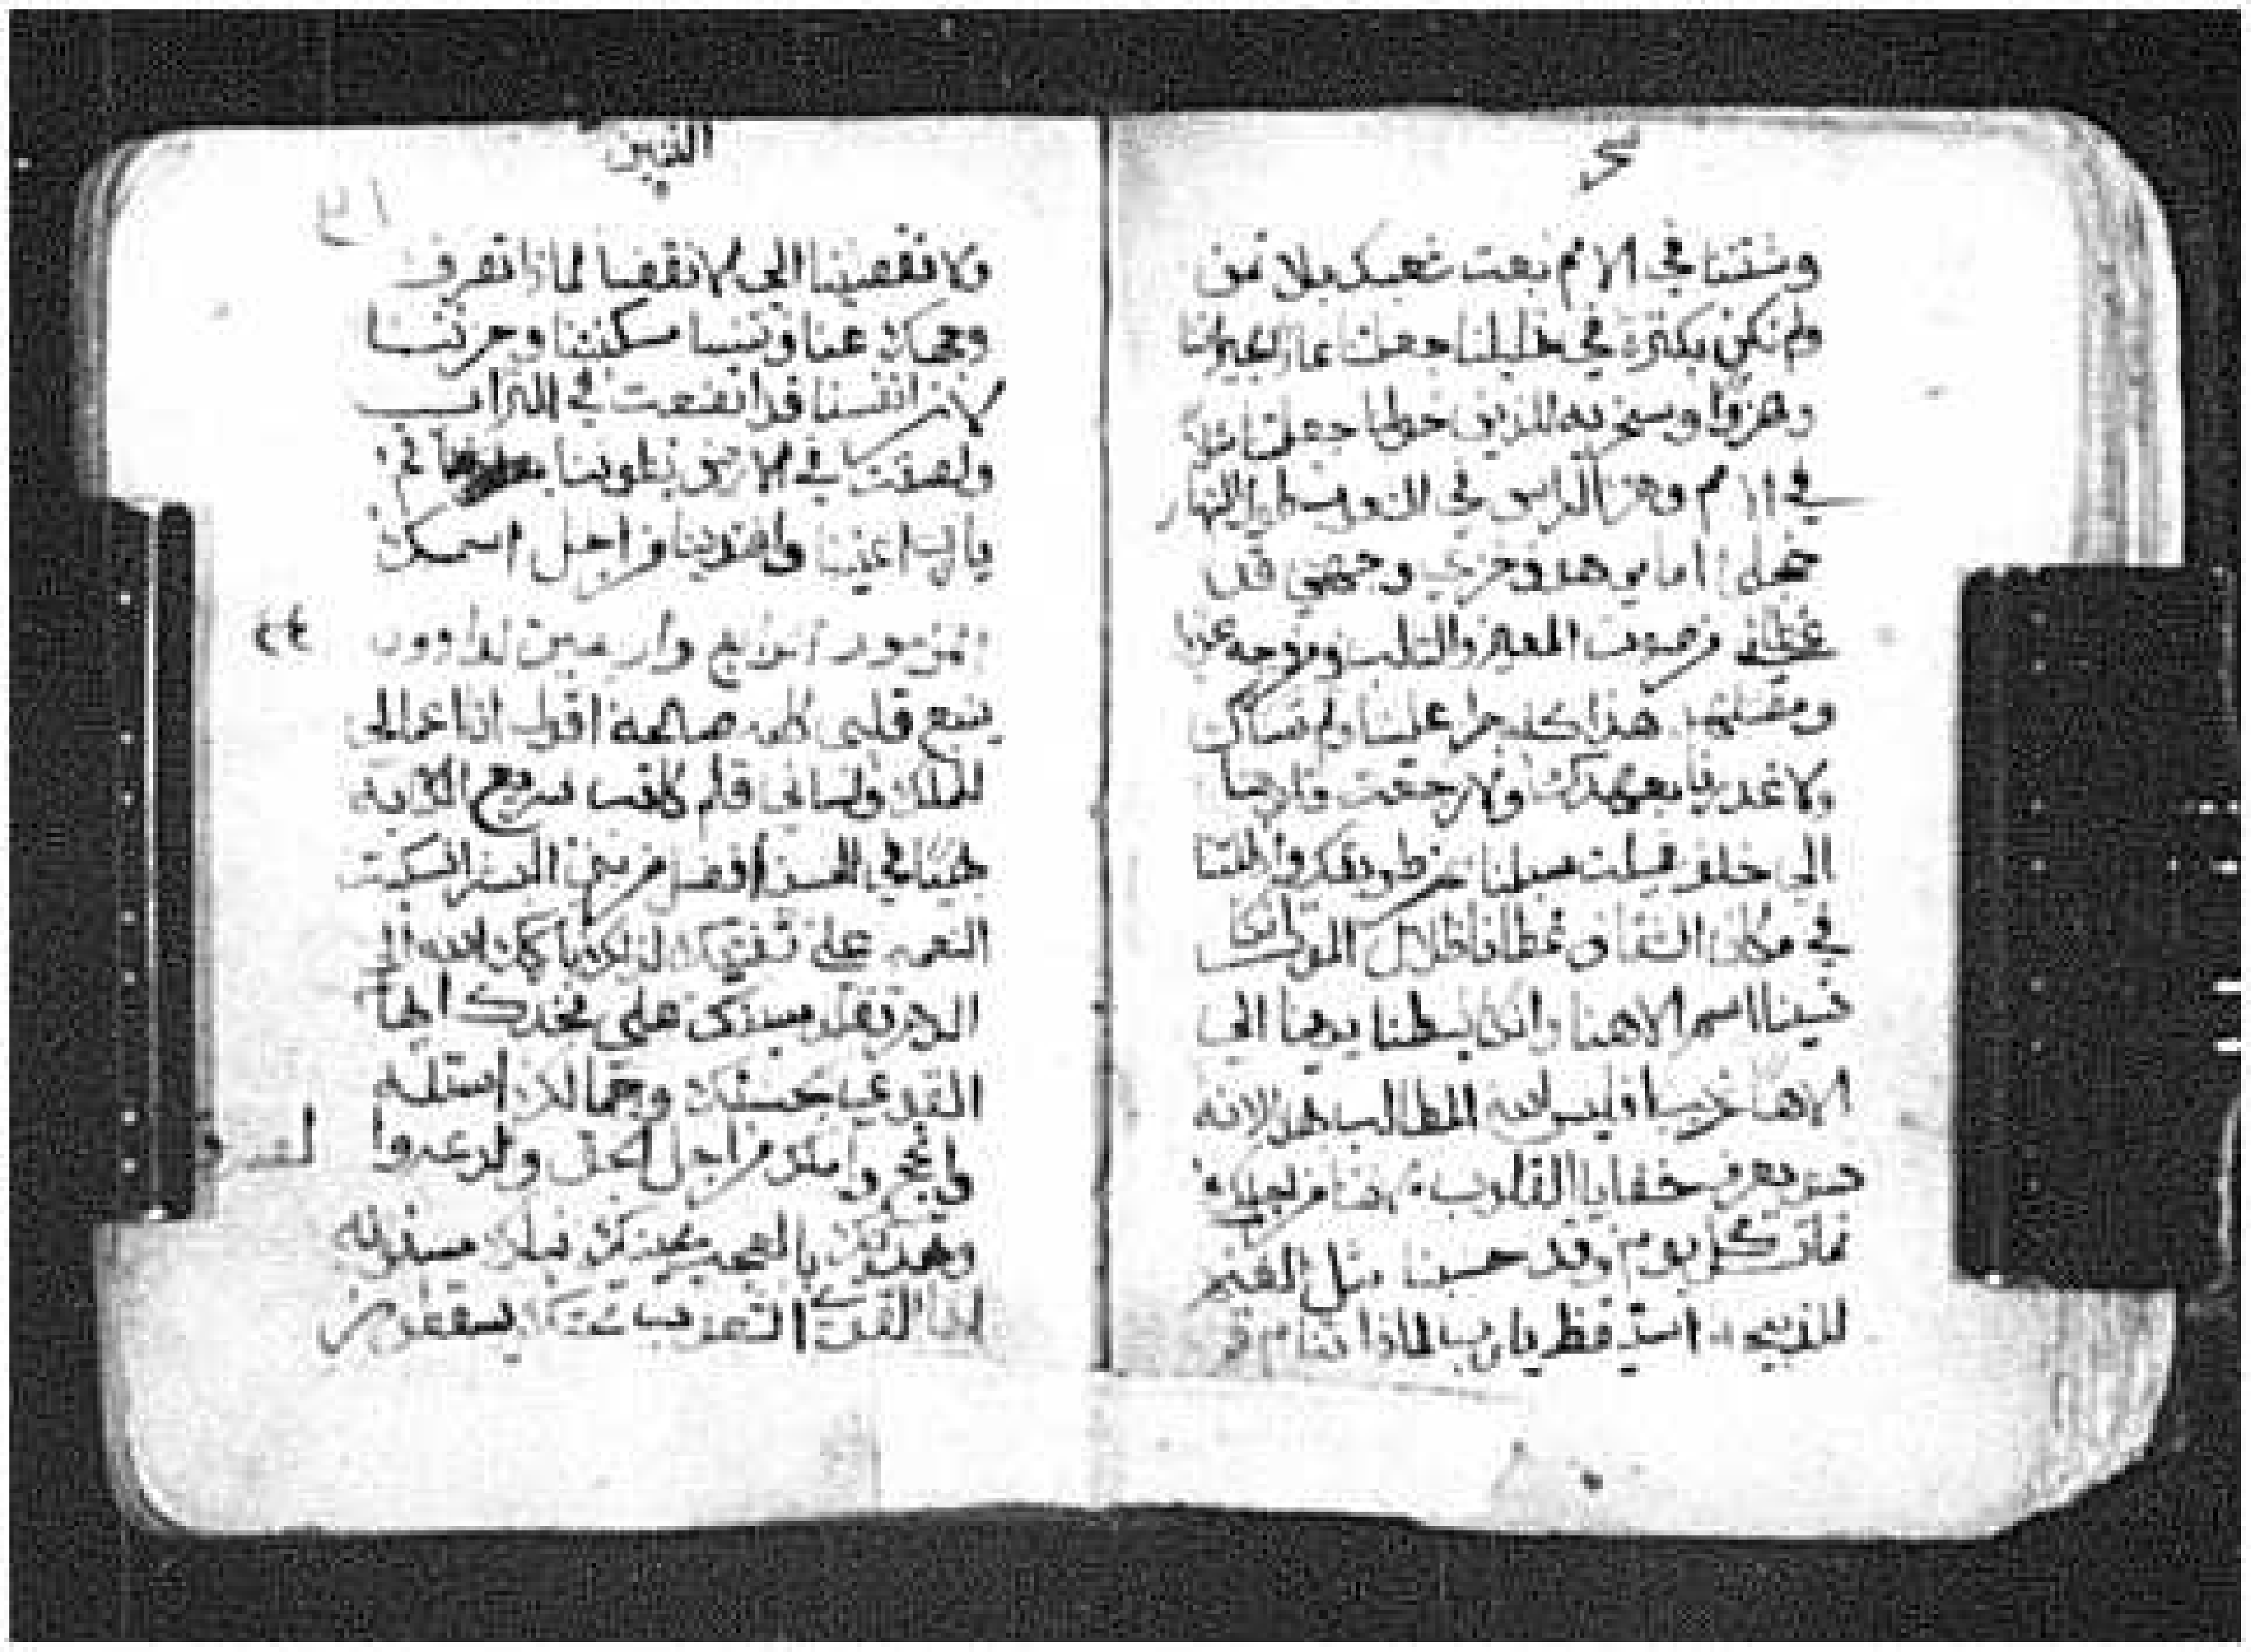 وشتتنا في الامم بعت شعبك بلا ثمن
ولم تكن بكثرة في جعلتنا عارا لجيراننا
وهزوا وسخريه للذين حولنا جعلتنا مثلا
في الامم وهز الراس في الشعوب طول النهار
خجلي امامي هو وخزي وجهي قد
غطاني من صوت المعير والثالب ومن وجه عدوا
هذا كله جرا علينا ولم ننساك
ولا غدرنا بعهدك ولا رجعت قلوبنا
الى خلف سبلنا عن
في مكان الشقا و غطانا ظلال الموت
نسينا اسم الاهنا وان كنا بسطنا يدينا الى
الاها غريبا فليس الله المطالب بهذا لانه
هو يعرف خفايا القلوب من اجلك
نمات كل يوم وقد حسبنا مثل الغنم
للذبيحه استيقظ يا رب لماذا تنام قم
النبيين
٢١
ولا تقصينا الى الانقضا لماذا تصرف
وجهك عنا وتنسا مسكنتنا وحزننا
لان انفسنا قد اتضعت في التراب
ولصقت في الارض بطوننا قم
يا رب اعنا وانقذنا من اجل اسمك
المزمور الرابع واربعين لداوود
٤٤
ينبع قلبي كلمه صالحه اقول انا اعمالي
للملك ولساني قلم كاتب سريع الكتابه
بهيا في الحسن افضل من بني البشر انسكبت
النعمه على شفتيك لذلك باركك الله الى
الدهر تقلد سيفك على فخذك ايها
القوي بحسنك وجمالك استله
وانجح واملك من اجل الحق والدعه وا
وتهديك بالعجب يمينك نبلك مسنونه
ايها القوي الشعوب تحتك يسقطون